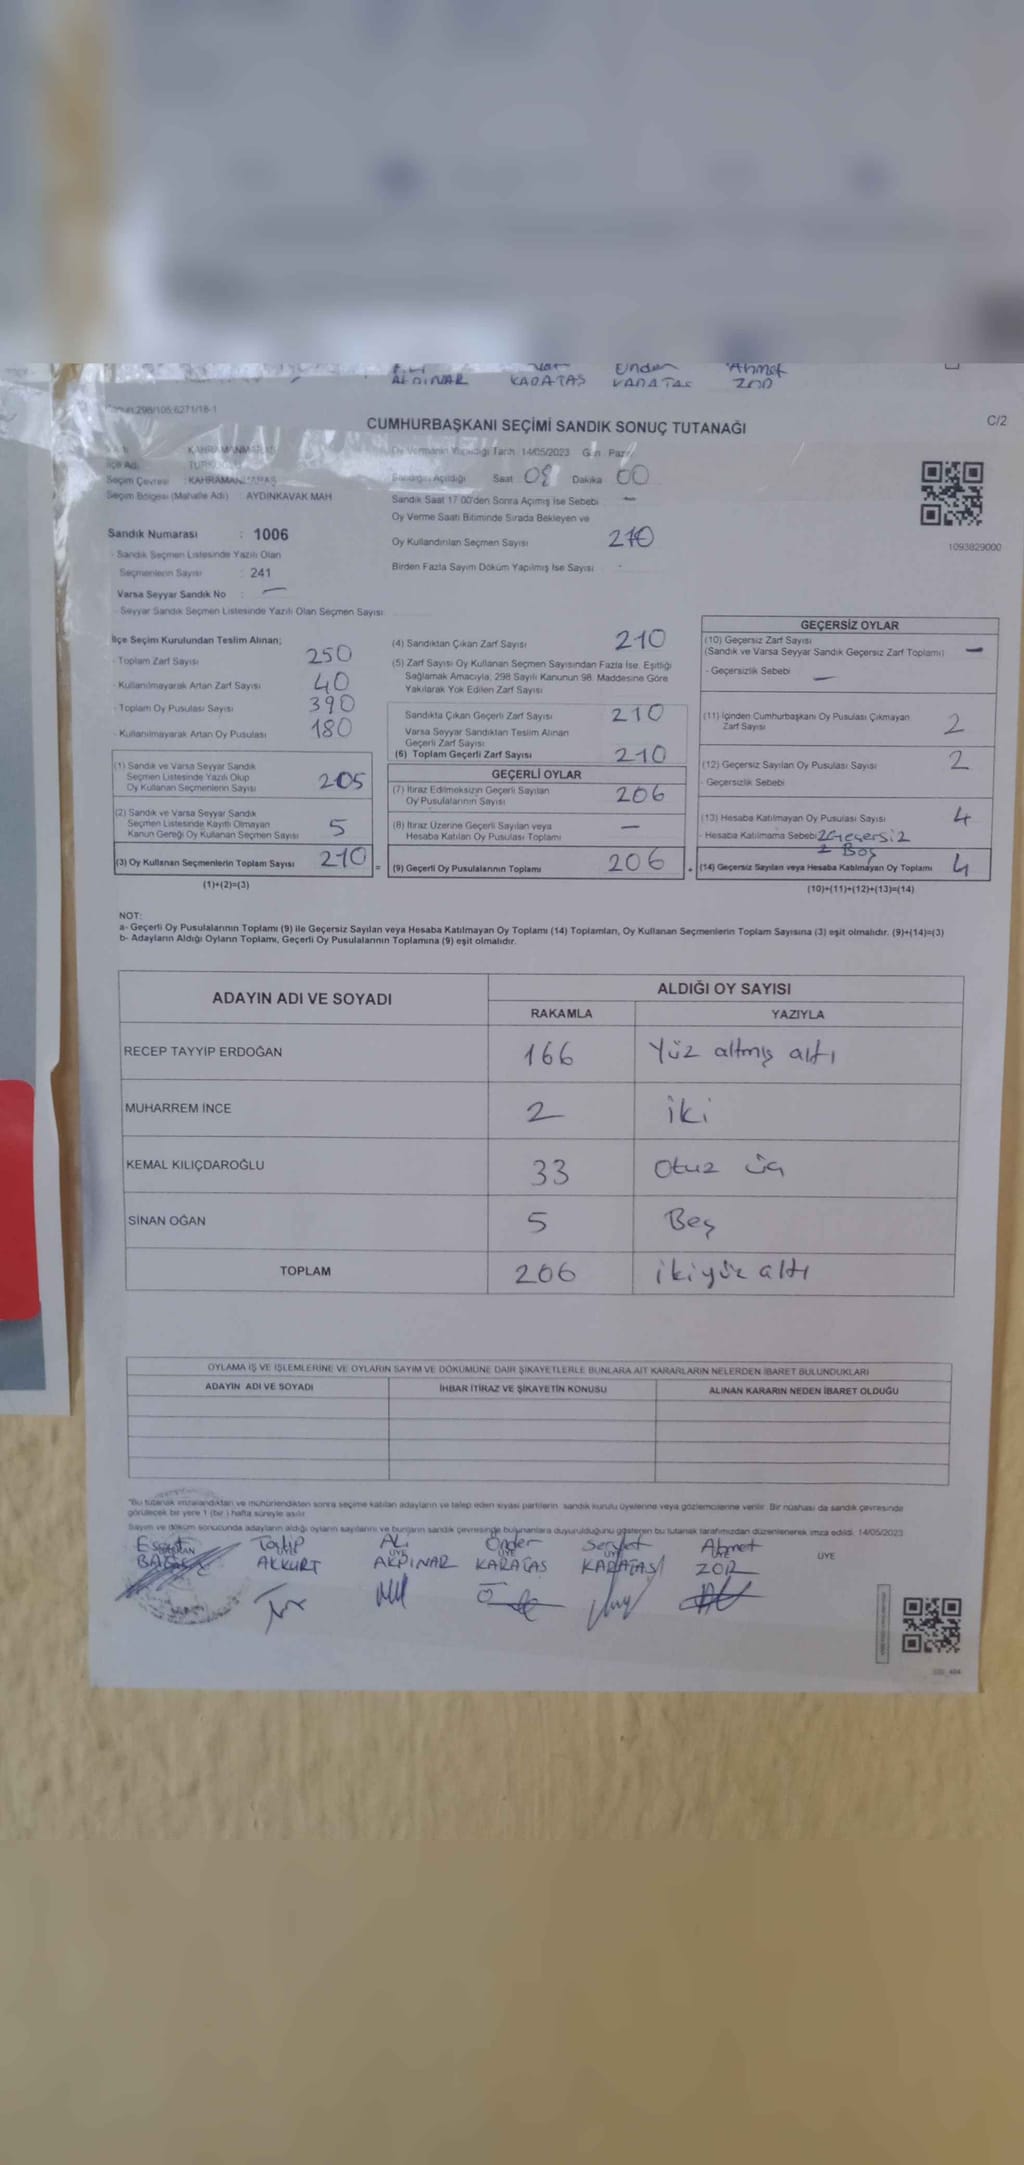 Önder Ahmet
AKPINAR KARATAŞ KARATAŞ ZOR
CUMHURBAŞKANI SEÇİMİ SANDIK SONUÇ TUTANAĞI
C/2
KAHRAMANMARAŞ
Oy Vermenin Yapıldığı Tarih 14/05/2023 Gün Pazar
İlçe Adı
Seçim Çevresi : KAHRAMANMARAŞ
Sandığın Açıldığı Saat 08 Dakika 00
Seçim Bölgesi (Mahalle Adı) : AYDINKAVAK MAH
Sandık Saat 17.00'den Sonra Açımış İse Sebebi —
Oy Verme Saati Bitiminde Sırada Bekleyen ve
Oy Kullandırılan Seçmen Sayısı 210
1093829000
Sandık Numarası : 1006
- Sandık Seçmen Listesinde Yazılı Olan
Seçmenlerin Sayısı : 241
Birden Fazla Sayım Döküm Yapılmış İse Sayısı -
Varsa Seyyar Sandık No : —
- Seyyar Sandık Seçmen Listesinde Yazılı Olan Seçmen Sayısı
İlçe Seçim Kurulundan Teslim Alınan;
- Toplam Zarf Sayısı 250
- Kullanılmayarak Artan Zarf Sayısı 40
- Toplam Oy Pusulası Sayısı 390
- Kullanılmayarak Artan Oy Pusulası 180
(1) Sandık ve Varsa Seyyar Sandık
Seçmen Listesinde Yazılı Olup
Oy Kullanan Seçmenlerin Sayısı 205
(2) Sandık ve Varsa Seyyar Sandık
Seçmen Listesinde Kayıtlı Olmayan
Kanun Gereği Oy Kullanan Seçmen Sayısı 5
(3) Oy Kullanan Seçmenlerin Toplam Sayısı 210 =
(1)+(2)=(3)
(4) Sandıktan Çıkan Zarf Sayısı 210
(5) Zarf Sayısı Oy Kullanan Seçmen Sayısından Fazla İse, Eşitliği
Sağlamak Amacıyla, 298 Sayılı Kanunun 98. Maddesine Göre
Yakılarak Yok Edilen Zarf Sayısı
Sandıkta Çıkan Geçerli Zarf Sayısı 210
Varsa Seyyar Sandıktan Teslim Alınan
Geçerli Zarf Sayısı
(6) Toplam Geçerli Zarf Sayısı 210
GEÇERLİ OYLAR
(7) İtiraz Edilmeksizin Geçerli Sayılan
Oy Pusulalarının Sayısı 206
(8) İtiraz Üzerine Geçerli Sayılan veya
Hesaba Katılan Oy Pusulası Toplamı —
(9) Geçerli Oy Pusulalarının Toplamı 206 +
GEÇERSİZ OYLAR
(10) Geçersiz Zarf Sayısı
(Sandık ve Varsa Seyyar Sandık Geçersiz Zarf Toplamı) —
- Geçersizlik Sebebi —
(11) İçinden Cumhurbaşkanı Oy Pusulası Çıkmayan
Zarf Sayısı 2
(12) Geçersiz Sayılan Oy Pusulası Sayısı 2
- Geçersizlik Sebebi
(13) Hesaba Katılmayan Oy Pusulası Sayısı 4
- Hesaba Katılmama Sebebi 2 Geçersiz
2 Boş
(14) Geçersiz Sayılan veya Hesaba Katılmayan Oy Toplamı 4
(10)+(11)+(12)+(13)=(14)
NOT:
a- Geçerli Oy Pusulalarının Toplamı (9) ile Geçersiz Sayılan veya Hesaba Katılmayan Oy Toplamı (14) Toplamları, Oy Kullanan Seçmenlerin Toplam Sayısına (3) eşit olmalıdır. (9)+(14)=(3)
b- Adayların Aldığı Oyların Toplamı, Geçerli Oy Pusulalarının Toplamına (9) eşit olmalıdır.
ADAYIN ADI VE SOYADI
ALDIĞI OY SAYISI
RAKAMLA YAZIYLA
RECEP TAYYİP ERDOĞAN 166 Yüz altmış altı
MUHARREM İNCE 2 iki
KEMAL KILIÇDAROĞLU 33 Otuz üç
SİNAN OĞAN 5 Beş
TOPLAM 206 ikiyüz altı
OYLAMA İŞ VE İŞLEMLERİNE VE OYLARIN SAYIM VE DÖKÜMÜNE DAİR ŞİKAYETLERLE BUNLARA AİT KARARLARIN NELERDEN İBARET BULUNDUKLARI
ADAYIN ADI VE SOYADI İHBAR İTİRAZ VE ŞİKAYETİN KONUSU ALINAN KARARIN NEDEN İBARET OLDUĞU
"Bu tutanak imzalandıktan ve mühürlendikten sonra seçime katılan adayların ve talep eden siyasi partilerin sandık kurulu üyelerine veya gözlemcilerine verilir. Bir nüshası da sandık çevresinde
görülecek bir yere 1 (bir) hafta süreyle asılır.
Sayım ve döküm sonucunda adayların aldığı oyların sayılarını ve bunların sandık çevresinde bulunanlara duyurulduğunu gösteren bu tutanak tarafımızdan düzenlenerek imza edildi. 14/05/2023
BAŞKAN ÜYE ÜYE ÜYE ÜYE
Tayip ALİ Önder Servet Ahmet
AKKURT AKPINAR KARATAŞ KARATAŞ ZOR